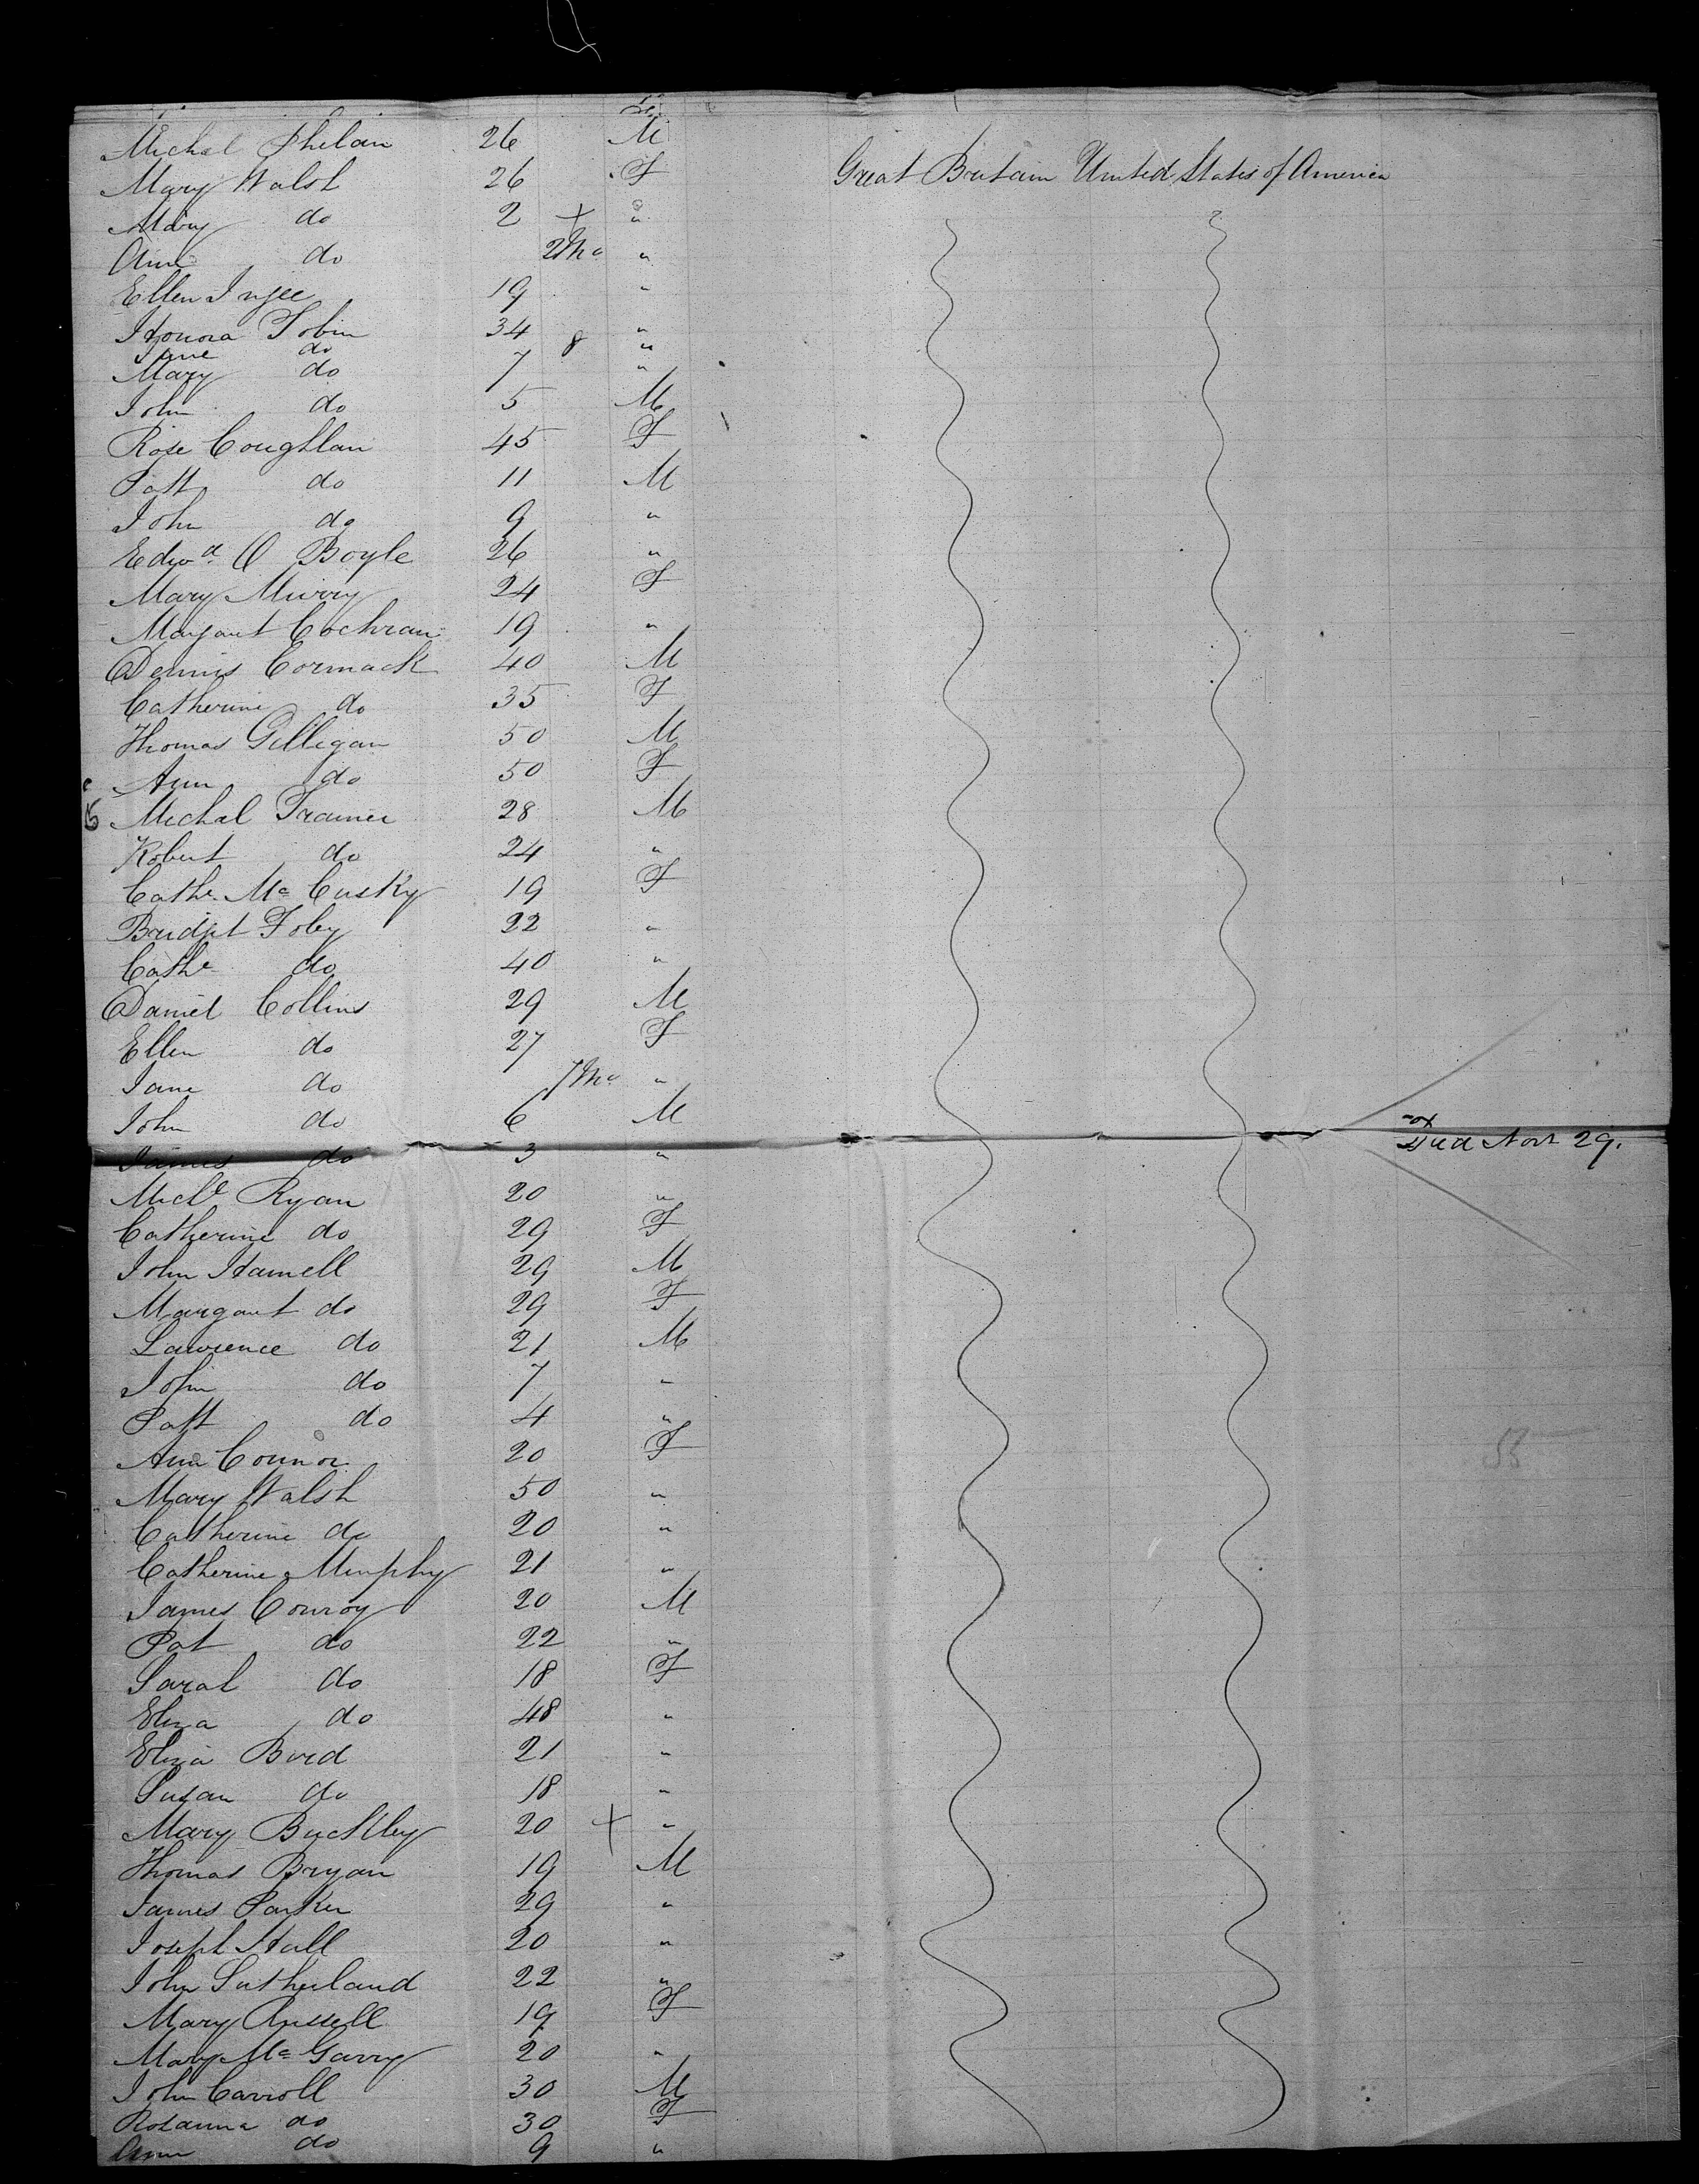 Michal Phelan 26 M
Mary Walsh 26 F Great Britain United States of America
Mary do 2 + "
Ann do 2 Mo "
Ellen 19 "
Honora Tobin 34 "
Jane do 8 "
Mary do 7 "
John do 5 M
Rose Coughlan 45 F
Patt do 11 M
John do 9 "
Edwd. O Boyle 26 "
Mary Murry 24 F
Margaret Cochran 19 "
Dennis Cormack 40 M
Catherine do 35 F
Thomas Gilligan 50 M
Ann do 50 F
Michal Trainer 28 M
Robert do 24 "
Cathe. Mc Cusky 19 F
Bridget Foley 22 "
Cathe do 40 "
Daniel Collins 29 M
Ellen do 27 F
Jane do 7 Mo "
John do 6 M
James do 3 " Died Novr 29.
Michl Ryan 20 "
Catherine do 29 F
John Hamell 29 M
Margaret do 29 F
Lawrence do 21 M
John do 7 "
Patt do 4 "
Ann Connor 20 F
Mary Walsh 50 "
Catherine do 20 "
Catherine Murphy 21 "
James Conroy 20 M
Pat do 22 "
Sarah do 18 F
Eliza do 48 "
Eliza Bird 21 "
Susan do 18 "
Mary Buckley 20 + "
Thomas Bryan 19 M
James Parker 29 "
Joseph Hall 20 "
John Sutherland 22 "
Mary Russell 19 F
Mary Mc Garry 20 "
John Carroll 30 M
Rosanna do 30 F
Ann do 9 "